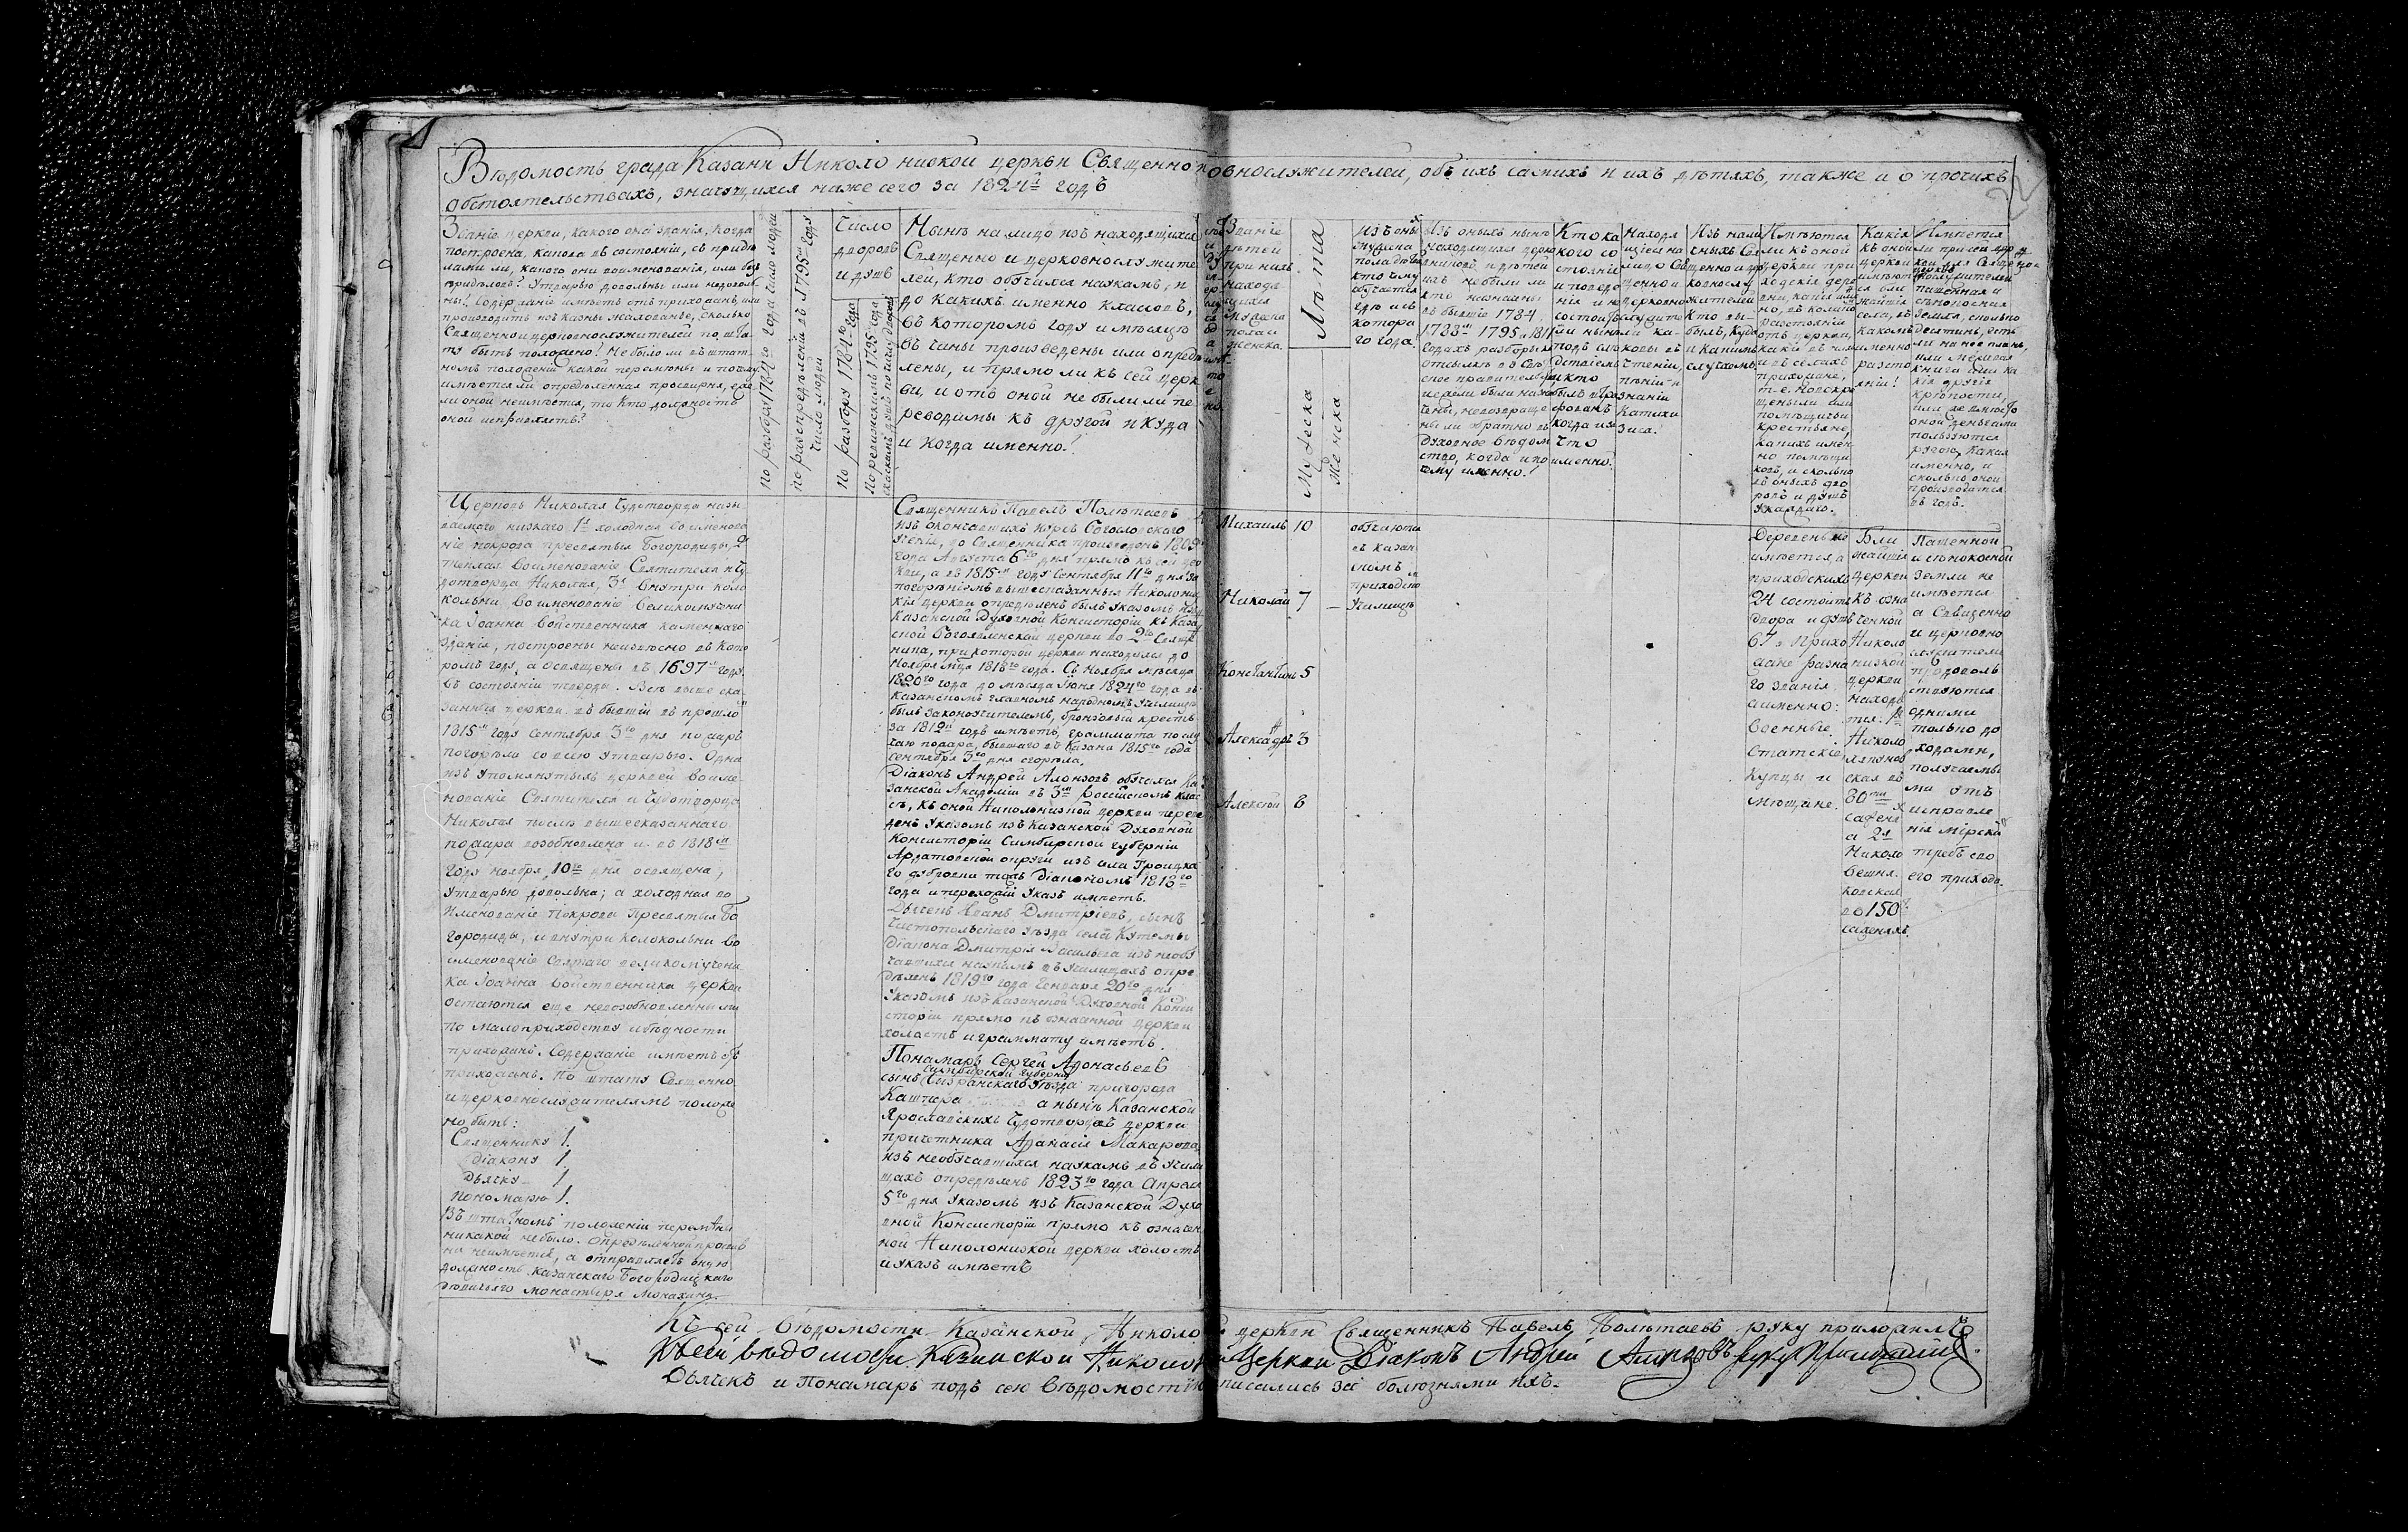 Вѣдомость града Казани Николо низкой церкви Священно церковнослужителей, объ ихъ самихъ и ихъ дѣтяхъ, также и о прочихъ
обстоятельствахъ, значущихся ниже сего за 1824й годъ
Званіе церкви, какого оно зданія, когда
построена, какова въ состояніи, съ придѣ
лами ли, какого они воименованія, или безъ
придѣловъ? Утварью довольны или недоволь
ны? Содержаніе имѣетъ отъ прихожанъ, или
производитъ изъ казны жалованье, сколько
Священно и церковнослужителей по шта
ту быть положено? Не было ли въ штат
номъ положеніи какой перемѣны и почему
имѣется ли опредѣленная просвирня, еже
ли оной неимѣется, то кто должность
оной исправляетъ?
по разбору 1784го года число людей
по распредѣленію въ 1795м году
число людей
Число
дворовъ
и душъ
по разбору 1784го года
по ревизскимъ 1795 года
сказкамъ душъ по числу дворовъ
Нынѣ на лицо изъ находящихся
Священно и церковнослужите
лей, кто обучался наукамъ, и
до какихъ именно классовъ,
въ которомъ году и мѣсяцѣ
въ чины произведены или опредѣ
лены, и прямо ли къ сей церк
ви, и отъ оной не были ли пе
реводимы къ другой и куда
и когда именно?
Званіе
дѣтей
при нихъ
находя
щихся
мужеска
пола и
женска
Лѣта
Мужеска
Женска
Изъ оныхъ
мужска
пола дѣтей
кто чему
обучается
гдѣ и съ
котора
го года?
Изъ оныхъ нынѣ
находящихся церко
вниковъ и дѣтей
ихъ небыли ли
кто назначены
въ бывшіе 1784,
1788м 1795 и 1811
годахъ разборы къ
отсылкѣ въ Свѣт
ское правительство
и ежели были назна
чены, невозвраще
ны ли обратно въ
духовное вѣдом
ство, когда и по
чему именно?
Кто ка
кого со
стоянія
и поведе
нія и не
состоитъ
ли нынѣ
подъ слѣ
дствіемъ
и кто
былъ штра
фованъ
когда и за
что
именно.
Находя
щіеся на
лицо Свя
щенно и
церковно
служите
ли ка
ковы въ
чтеніи,
пѣніи и
знаніи
Катихи
зиса?
Изъ нали
чныхъ Свя
щенно и цер
ковнослу
жителей
кто вы
былъ, куда
и какимъ
случаемъ
Имѣются
ли къ оной
церкви при
ходскія дере
вни, какія имян
но, въ коликомъ
разстояніи
отъ церкви,
прихожане,
крестьяне,
Какія
къ оной
церкви
имѣют
ся бли
жайшія
села, въ
какомъ
именно
разсто
яніи?
Имѣется
ли при сей церк
ви для Священно
церковнослужителей
пашенная и
сѣнокосная
земля, сколько
десятинъ, есть
ли на нее планъ,
или межевая
книга или ка
кія другія
крѣпости,
пользуются
ругою, какая
именно, и
сколько оной
производится
въ годъ.
Церковь Николая Чудотворца назы
ваемаго низкаго 1я холодная воименова
ніе покрова пресвятыя Богородицы, 2я
теплая воименованіе Святителя и Чу
дотворца Николая, 3я внутри коло
кольни воименованіе великомучени
ка Іоанна войственника каменнаго
зданія, построены неизвѣстно въ кото
ромъ году, а освящены въ 1697м году.
въ состояніи тверды. Всѣ выше ска
занныя церкви въ бывшій въ прошло
1815м году сентября 3го дня пожаръ
погорѣли со всею утварью. Одна
изъ упомянутыхъ церквей воиме
нованіе Святителя и Чудотворца
Николая послѣ вышесказаннаго
пожара возобновлена и въ 1818м
году ноября 10го дня освящена,
утварью довольна; а холодная во
именованіе покрова Пресвятыя Бо
городицы, и внутри колокольни во
именованіе Святаго великомучени
ка Іоанна войственника церкви
остаются еще невозобновленными
по малоприходству и бѣдности
прихожанъ. Содержаніе имѣетъ отъ
прихожанъ. По штату Священно
и церковнослужителямъ положе
но быть:
Священнику 1.
Діакону 1
Дьячку 1
Пономарю 1.
Въ штатномъ положеніи перемѣны
никакой небыло. Опредѣленной просвир
ни неимѣется, а отправляетъ оную
должность Казанскаго Богородицкаго
дѣвичьяго монастыря монахиня.
Священникъ Павелъ Полѣтаевъ
изъ окончавшихъ курсъ Богословскаго
ученія, во Священника произведенъ 1809
года Августа 6го дня прямо къ сей цер
кви, а въ 1815м году Сентября 11го дня за
погорѣніемъ вышесказанныя Николониз
кія церкви опредѣленъ былъ указомъ изъ
Казанской Духовной Консисторіи къ Каза
нской Богоявленской церкви во 2го Свяще
нника, при которой церкви находился до
Ноября мѣсяца 1818го года. Съ ноября мѣсяца
1820го года до мѣсяца Іюня 1824го года въ
Казанскомъ главномъ народномъ училищѣ
былъ законоучителемъ, бронзовый крестъ
за 1812й годъ имѣетъ, граммата по слу
чаю пожара, бывшаго въ Казани 1815го года
сентября 3го дня сгорѣла.
Діаконъ Андрей Алонзовъ обучался Ка
занской Академіи въ 3м Россійскомъ клас
сѣ, къ оной Николонизкой церкви переве
денъ указомъ изъ Казанской Духовной
Консисторіи Симбирской губерніи
Ардатовской округи изъ села Троицка
го дубровки тожъ Діакономъ 1818го
года и перехожій указъ имѣетъ.
Дьячекъ Иванъ Дмитріевъ, сынъ
Чистопольскаго уѣзда села Кутемы
Діакона Дмитрія Васильева изъ необу
чавшихся наукамъ въ училищахъ опре
дѣленъ 1819го года Генваря 20го дня
Указомъ изъ Казанской Духовной Конси
сторіи прямо къ означенной церкви
холостъ и граммату имѣетъ.
Пономарь Сергей Афонасьевъ
Симбирской губерніи
сынъ Сызранскаго уѣзда пригорода
Кашпира а нынѣ Казанской
Ярославскихъ Чудотворцевъ церкви
причетника Афанасія Макарова,
изъ необучавшихся наукамъ въ учили
щахъ опредѣленъ 1823го года Апреля
5го дня Указомъ изъ Казанской Духо
вной Консисторіи прямо къ означен
ной Николонизкой церкви холостъ
и указъ имѣетъ
Михаилъ 10
Николай 7
Константинъ 5
Александръ 3
Алексей 8
обучаются
въ Казан
скомъ
приходско
училищѣ
Деревень не
имѣется, а
приходскихъ
24 состоитъ
двора и душъ
67. Прихо
жане разна
го званія,
а именно:
военные,
статскіе,
купцы и
мѣщане.
Бли
жайшія
церкви
къ озна
ченной
Николо
низкой
церкви
находя
тся: 1я
Николо
ляпунов
ская въ
80ти
саженя
а 2я
Николо
вешня
ковская
въ 150
саженяхъ.
Пашенной
и сѣнокосной
земли не
имѣется
а Священно
и церковно
служители
продоволь
ствуются
одними
только до
ходами,
получаемы
ми отъ
исправле
нія мірски
требъ сво
его прихода.
Къ сей вѣдомости Казанской Николо церкви Священникъ Павелъ Полѣтаевъ руку приложилъ
Къ сей вѣдомости Казанской Николо церкви Діаконъ Андрей Алонзовъ руку приложилъ.
Дьячекъ и Пономарь подъ сею вѣдомостію неподписались за болѣзнями ихъ.